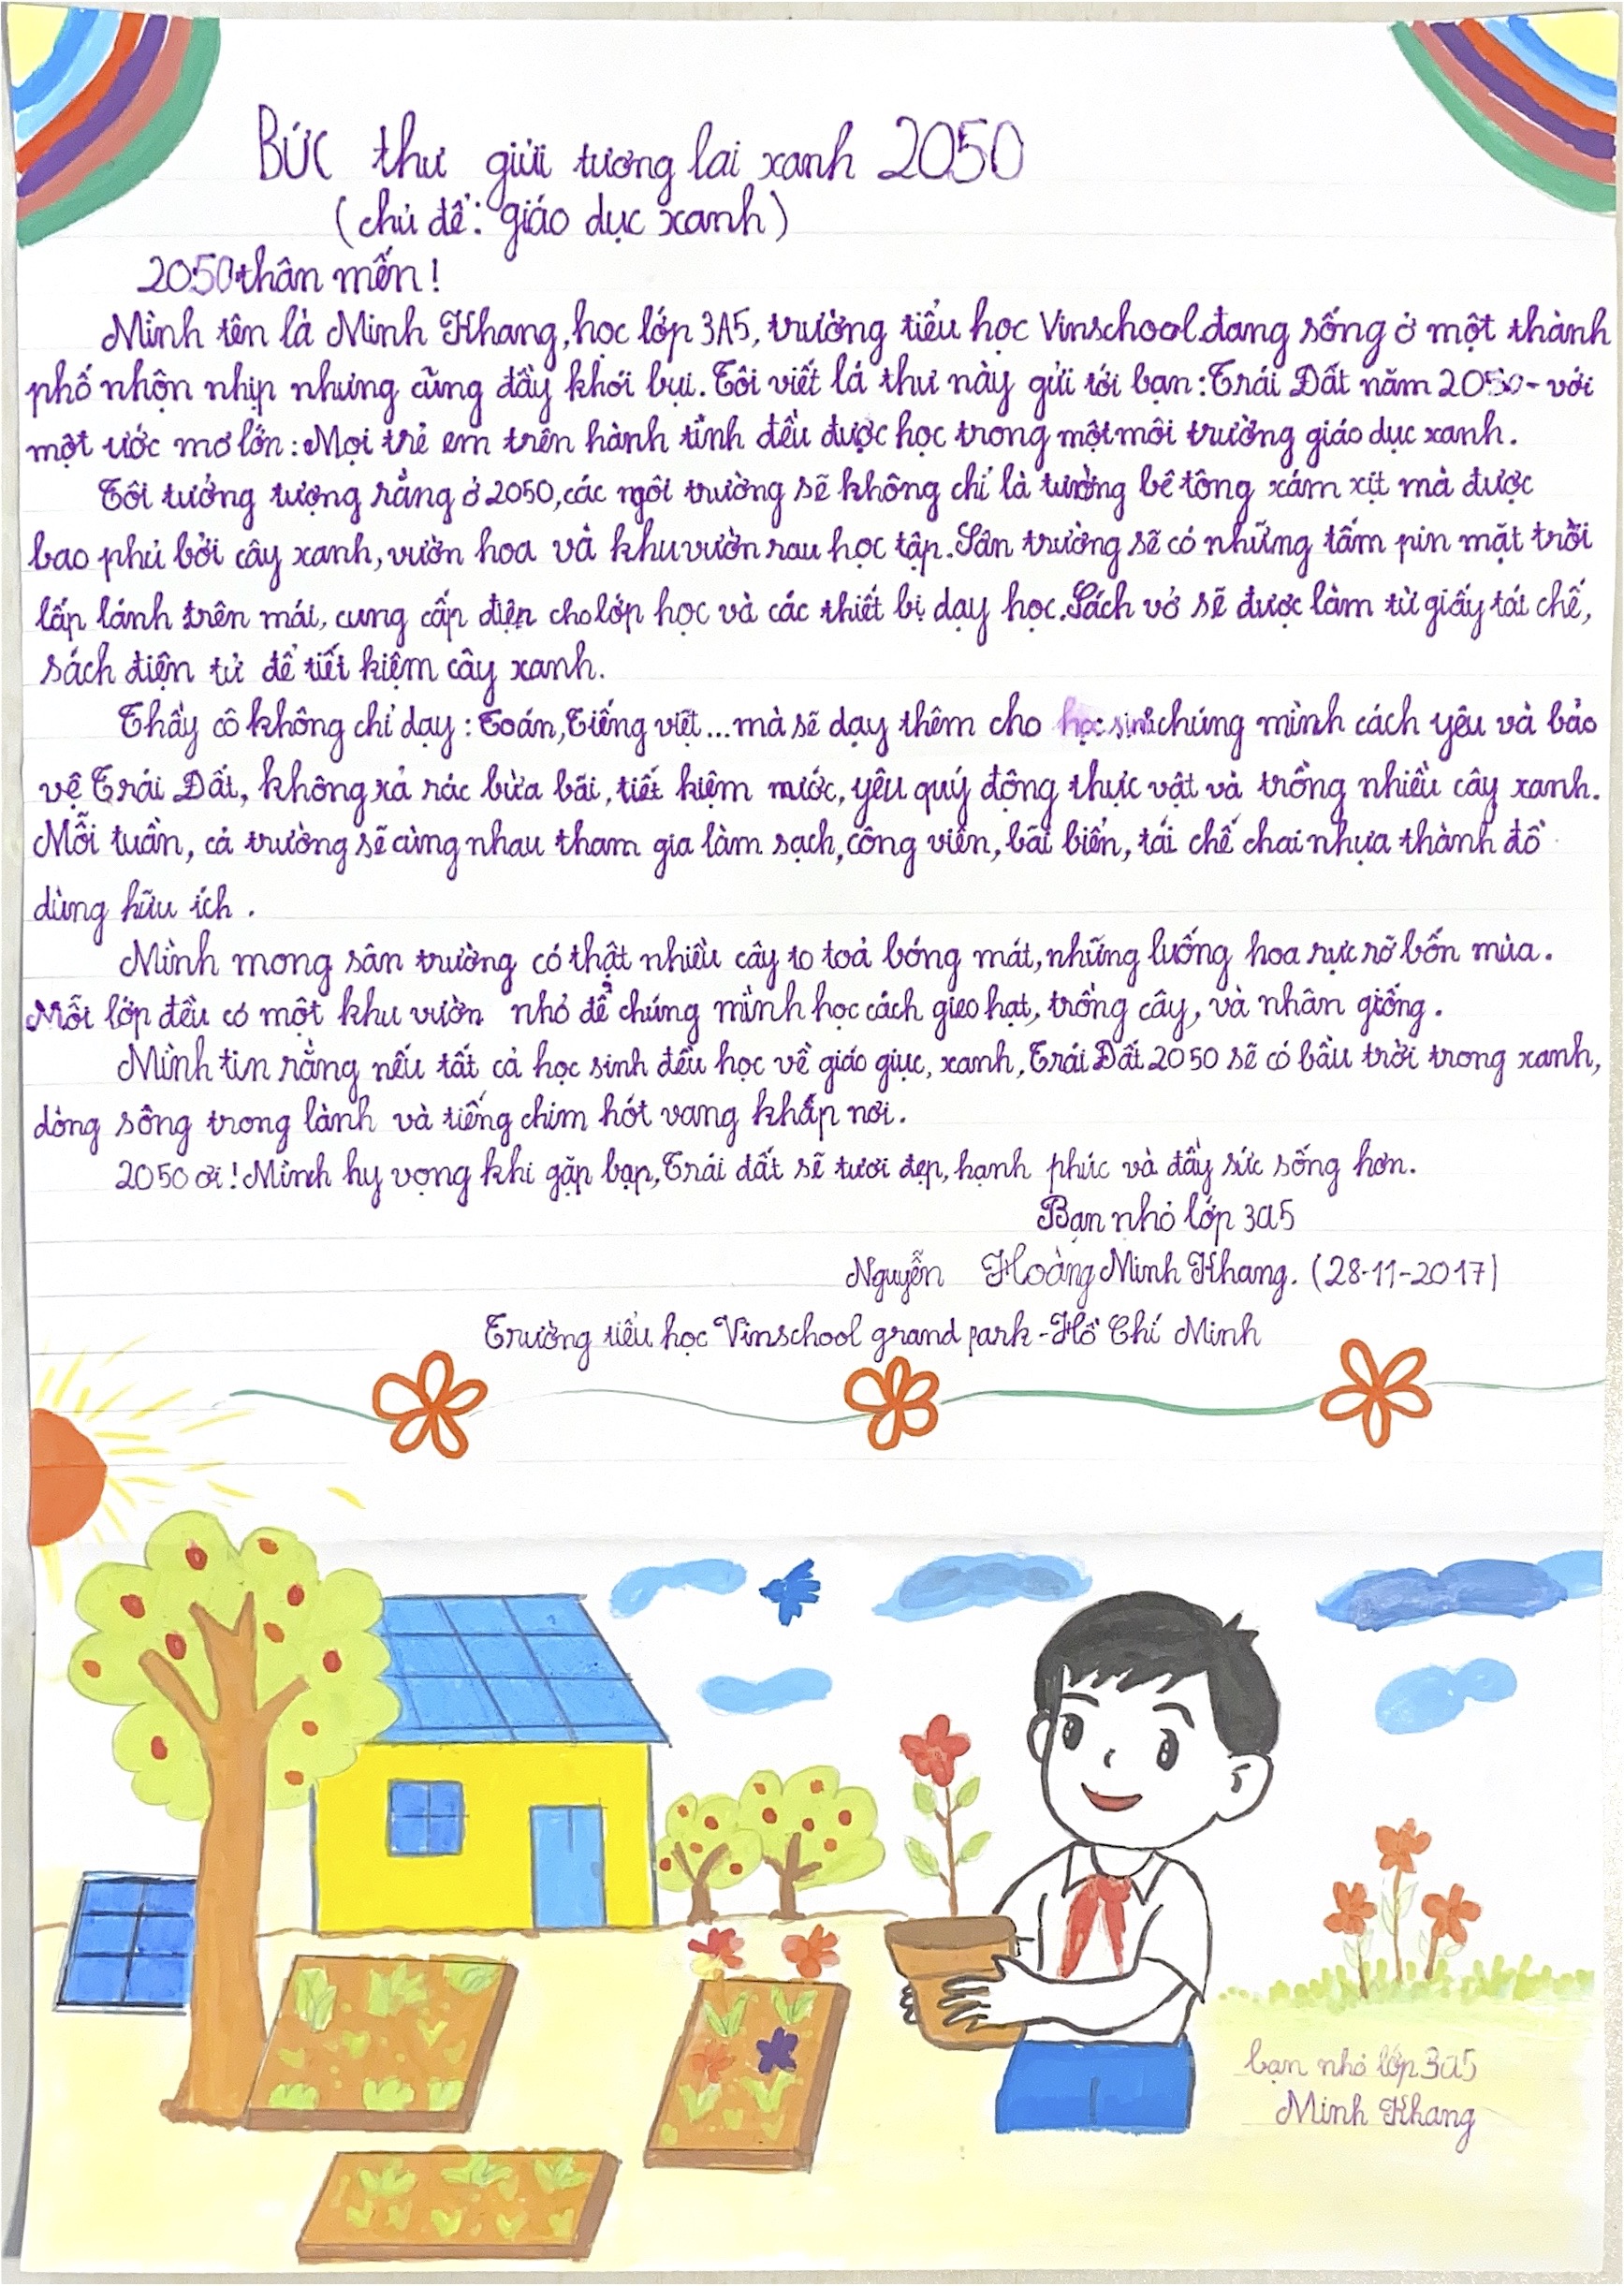 Bức thư gửi tương lai xanh 2050
(chủ đề: giáo dục xanh)
2050 thân mến!
Mình tên là Minh Khang, học lớp 3A5, trường tiểu học Vinschool đang sống ở một thành
phố nhộn nhịp nhưng cũng đầy khói bụi. Tôi viết lá thư này gửi tới bạn: Trái Đất năm 2050 - với
một ước mơ lớn: Mọi trẻ em trên hành tinh đều được học trong một môi trường giáo dục xanh.
Tôi tưởng tượng rằng ở 2050, các ngôi trường sẽ không chỉ là tường bê tông xám xịt mà được
bao phủ bởi cây xanh, vườn hoa và khu vườn rau học tập. Sân trường sẽ có những tấm pin mặt trời
lấp lánh trên mái, cung cấp điện cho lớp học và các thiết bị dạy học. Sách vở sẽ được làm từ giấy tái chế,
sách điện tử để tiết kiệm cây xanh.
Thầy cô không chỉ dạy: Toán, Tiếng việt... mà sẽ dạy thêm cho học sinh chúng mình cách yêu và bảo
vệ Trái Đất, không xả rác bừa bãi, tiết kiệm nước, yêu quý động thực vật và trồng nhiều cây xanh.
Mỗi tuần, cả trường sẽ cùng nhau tham gia làm sạch, công viên, bãi biển, tái chế chai nhựa thành đồ
dùng hữu ích.
Mình mong sân trường có thật nhiều cây to toả bóng mát, những luống hoa rực rỡ bốn mùa.
Mỗi lớp đều có một khu vườn nhỏ để chúng mình học cách gieo hạt, trồng cây, và nhân giống.
Mình tin rằng nếu tất cả học sinh đều học về giáo giục, xanh, Trái Đất 2050 sẽ có bầu trời trong xanh,
dòng sông trong lành và tiếng chim hót vang khắp nơi.
2050 ơi! Mình hy vọng khi gặp bạn, Trái đất sẽ tươi đẹp, hạnh phúc và đầy sức sống hơn.
Bạn nhỏ lớp 3a5
Nguyễn Hoàng Minh Khang. (28-11-2017)
Trường tiểu học Vinschool grand park - Hồ Chí Minh
bạn nhỏ lớp 3a5
Minh Khang